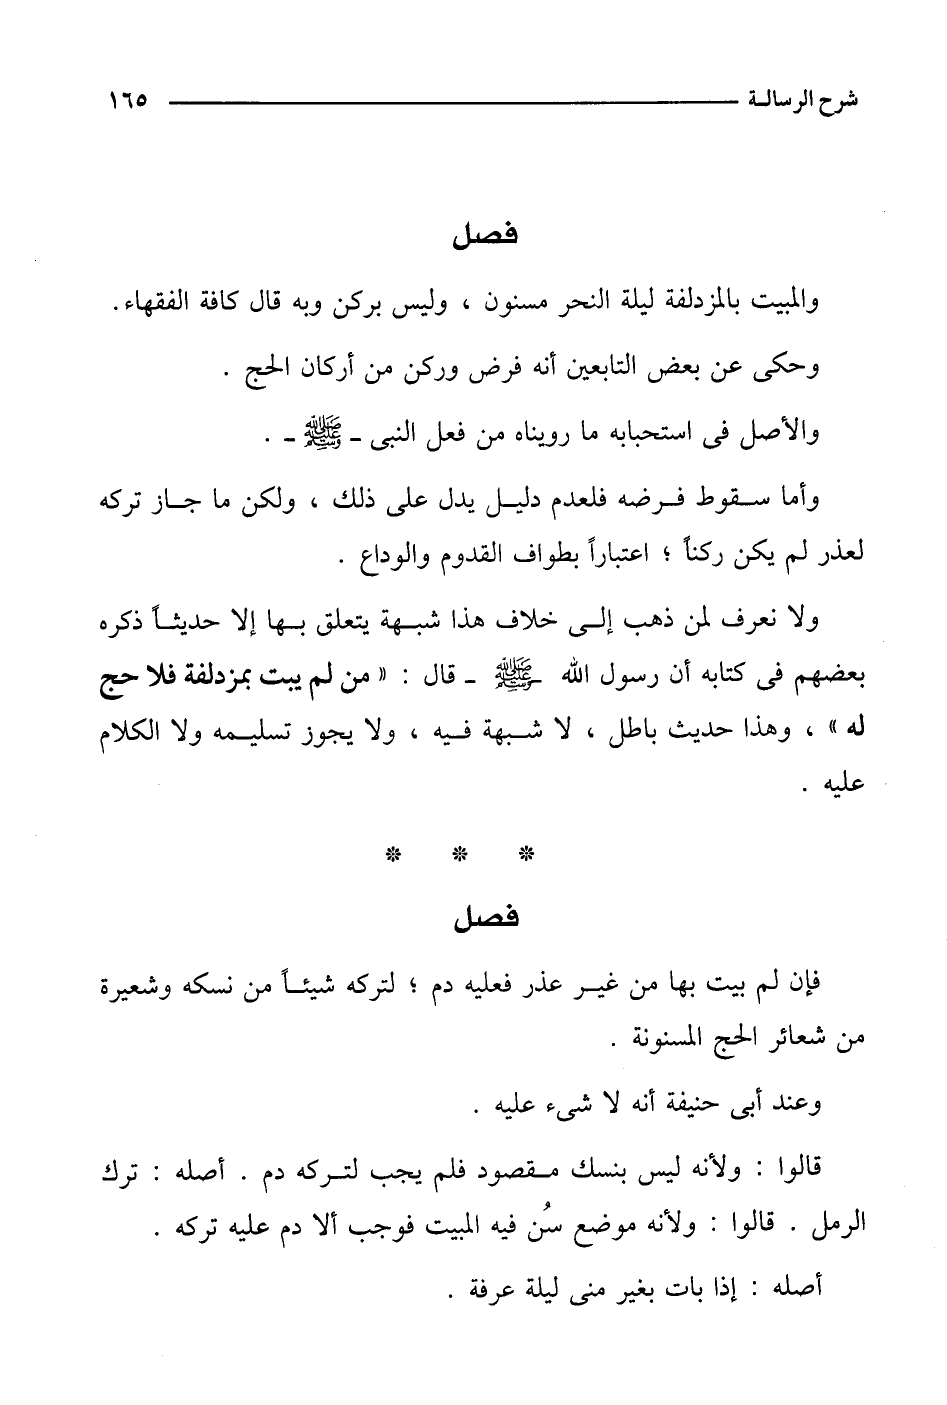 شرح الرسالة ١٦٥
فصل
والمبيت بالمزدلفة ليلة النحر مسنون ، وليس بركن وبه قال كافة الفقهاء.
وحكى عن بعض التابعين أنه فرض وركن من أركان الحج .
والأصل فى استحبابه ما رويناه من فعل النبى ـ ﷺ ـ .
وأما سقوط فرضه فلعدم دليل يدل على ذلك ، ولكن ما جاز تركه
لعذر لم يكن ركناً ؛ اعتباراً بطواف القدوم والوداع .
ولا نعرف لمن ذهب إلى خلاف هذا شبهة يتعلق بها إلا حديثاً ذكره
بعضهم فى كتابه أن رسول الله ـ ﷺ ـ قال : « من لم يبت بمزدلفة فلا حج
له » ، وهذا حديث باطل ، لا شبهة فيه ، ولا يجوز تسليمه ولا الكلام
عليه .
* * *
فصل
فإن لم يبت بها من غير عذر فعليه دم ؛ لتركه شيئاً من نسكه وشعيرة
من شعائر الحج المسنونة .
وعند أبى حنيفة أنه لا شىء عليه .
قالوا : ولأنه ليس بنسك مقصود فلم يجب لتركه دم . أصله : ترك
الرمل . قالوا : ولأنه موضع سُن فيه المبيت فوجب ألا دم عليه تركه .
أصله : إذا بات بغير منى ليلة عرفة .